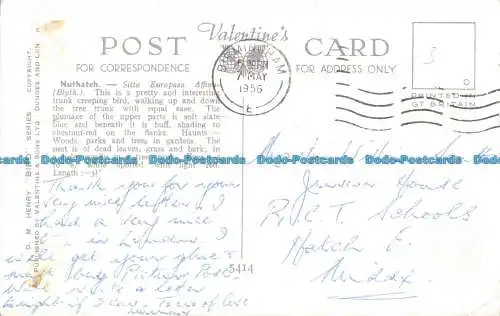 Valentine's
POST CARD
FOR CORRESPONDENCE
FOR ADDRESS ONLY
Nuthatch. — Sitta Europaea Affinis
(Blyth.) This is a pretty and interesting
trunk creeping bird, walking up and down
the tree trunk with equal ease. The
plumage of the upper parts is soft slate-
blue and beneath it is buff, shading to
chestnut-red on the flanks. Haunts—
Woods, parks and trees in gardens. The
nest is of dead leaves, grass and bark, in
Length :—5¾"
BIRMINGHAM
7 MAY
1956
E
PRINTED IN
GT BRITAIN
3
D. M. HENRY BIRD SERIES COPYRIGHT.
PUBLISHED BY VALENTINE & SONS LTD. DUNDEE AND LONDON
Postcards-Books Postcards-Books Postcards-Books Postcards-Books
Thank you for your
very nice letter. I
had a very nice
in London. I
will get your glue &
Picture Post
Will write a letter
tonight if I can. Tons of love
5414
Junior House
R.C.T. Schools
Hatch E.
Middx.